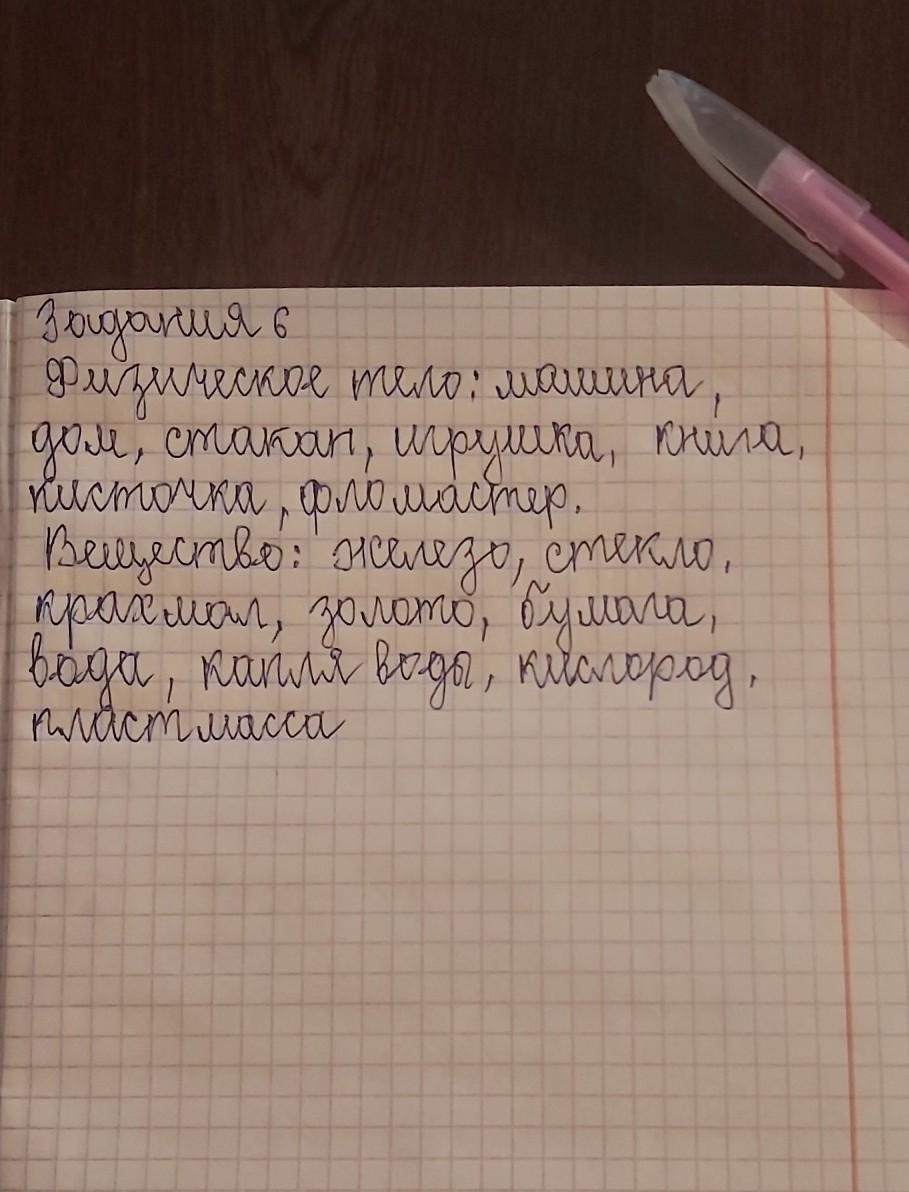 Задания 6
Физическое тело: машина,
дом, стакан, игрушка, книга,
кисточка, фломастер.
Вещество: железо, стекло,
крахмал, золото, бумага,
вода, капля воды, кислород,
пластмасса